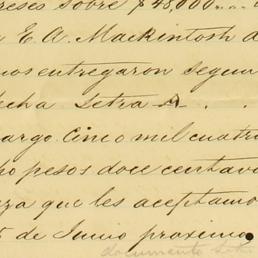 reses sobre $ 48,000
E. A. Mackintosh d
nos entregaron segun
fecha Letra A
argo. Cinco mil cuatro
ho pesos doce centav
za que les aceptamo
5 de Junio proximo.
documento